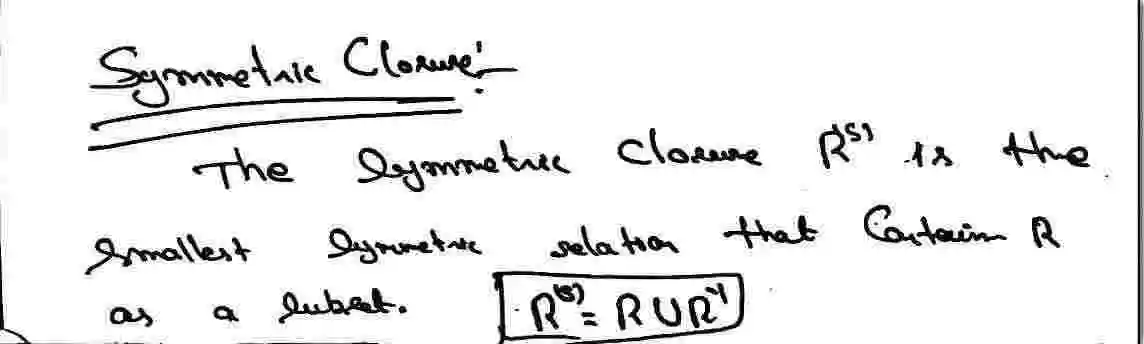 Symmetric Closure:-
The Symmetric Closure R(S) is the
Smallest Symmetric relation that Contain R
as a Subset. R(S) = R ∪ R⁻¹